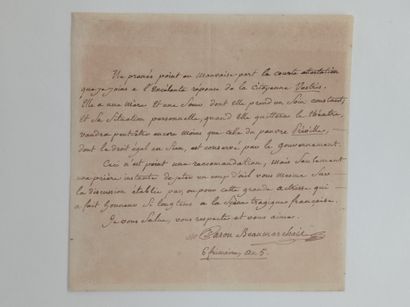 Ne prenés point en mauvaise part la courte attestation
que je joins a l'Excelente réponse de la citoyenne Vestris.
Elle a une mère et une Sœur dont elle prend un Soin constant;
et Sa Situation personnelle, quand elle quittera le théâtre,
vaudra peutêtre encore moins que celle du pauvre Préville,
dont le droit égal au Sien, est conservé par le gouvernement.
Ceci n'est point une recomandation, mais Seulement
une prière instante de jeter un coup d'œil vous mesme Sur
la discussion établie par ou pour cette grande actrisse qui
a fait honneur Si longtems a la Scène tragique française.
Je vous Salue, vous respecte et vous aime.
Caron Beaumarchais
6 frimaire, an 5.